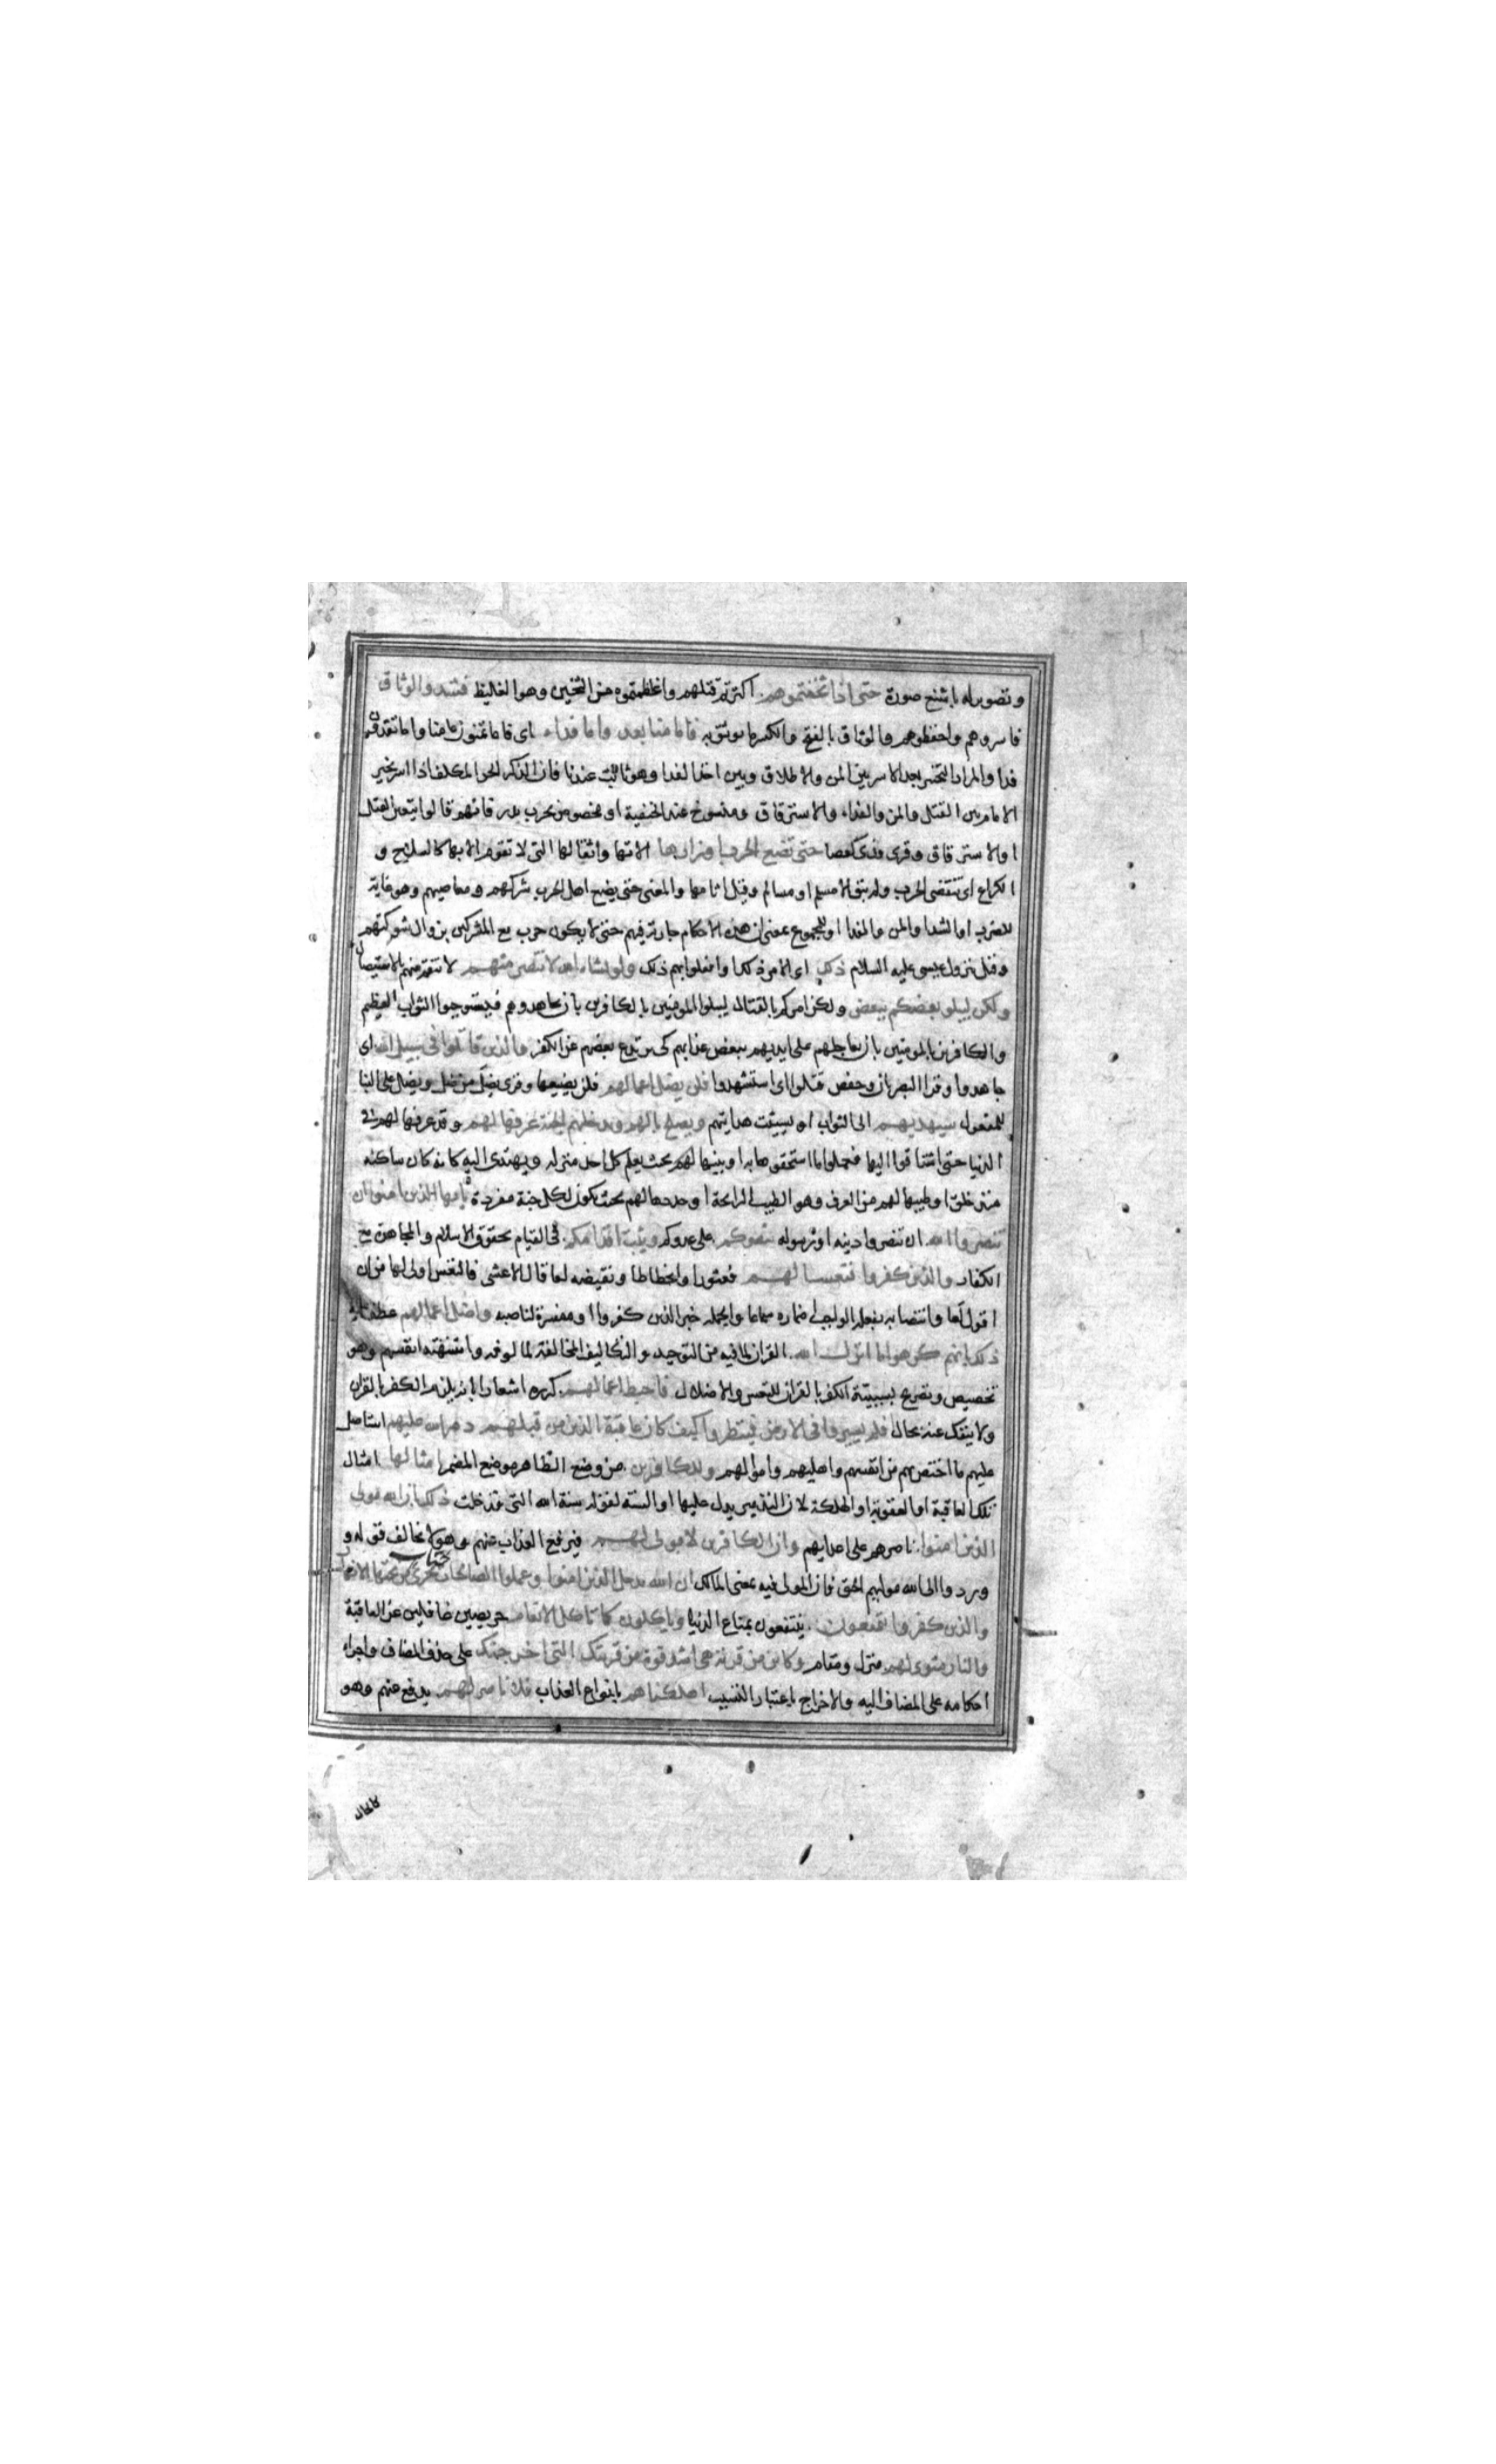 وتصوير له باشنع صورة حتى اذا اثخنتموهم اكثرتم قتلهم واغلظتموه من الثخين وهو الغليظ فشدوا الوثاق
فاسروهم واحفظوهم والوثاق بالفتح والكسر ما يوثق به فاما منا بعد واما فداء اى فاما تمنون منا واما تفدون
فدا والمراد التخيير بعد الاسر بين المن والاطلاق وبين اخذ الفدا وهو ثابت عندنا فان الذكر الحر المكلف اذا اسر تخير
الامام بين القتل والمن والفداء والاسترقاق ومنسوخ عند الحنفية او مخصوص بحرب بدر فانهم قالوا بتعين القتل
او الاسترقاق وقرى فدى كعصا حتى تضع الحرب اوزارها الاتها واثقالها التى لا تقوم الا بها كالسلاح و
الكراع اى تنقضى الحرب ولم يبق الا مسلم او مسالم وقيل اثامها والمعنى حتى يضع اهل الحرب شركهم ومعاصيهم وهو غاية
للضرب او الشد او المن والفدا او للمجموع بمعنى ان هذه الاحكام جارية فيهم حتى لا يكون حرب مع المشركين بزوال شوكتهم
وقيل نزول عيسى عليه السلام ذلك اى الامر ذلك او افعلوا بهم ذلك ولو يشاء الله لانتصر منهم لانتقم منهم بالاستيصال
ولكن ليبلو بعضكم ببعض ولكن امركم بالقتال ليبلوا المومنين بالكافرين بان يجاهدوهم فيستوجبوا الثواب العظيم
والكافرين بالمومنين بان يعاجلهم على ايديهم ببعض عذابهم كى يرتدع بعضهم عن الكفر والذين قاتلوا فى سبيل الله اى
جاهدوا وقرا البصريان وحفص قتلوا اى استشهدوا فلن يضل اعمالهم فلن يضيعها وقرى يضل من ضل ويضل على البنا
للمفعول سيهديهم الى الثواب او سيثبت هدايتهم ويصلح بالهم ويدخلهم الجنة عرفها لهم وقد عرفها لهم فى
الدنيا حتى اشتاقوا اليها فعملوا ما استحقوها به او بينها لهم بحيث يعلم كل احد منزله ويهتدى اليه كانه كان ساكنه
منذ خلق او طيبها لهم من العرف وهو الطيب الرايحة او حددها لهم بحيث يكون لكل جنة مفردة يا ايها الذين امنوا ان
تنصروا الله ان تنصروا دينه او رسوله ينصركم على عدوكم ويثبت اقدامكم فى القيام بحقوق الاسلام والمجاهدة مع
الكفار والذين كفروا فتعسا لهم فعثورا وانحطاطا ونقيضه لعا قال الاعشى فالتعس اولى لها من ان
اقول لعا وانتصابه بفعله الواجب اضماره سماعا والجملة خبر الذين كفروا او مفسرة لناصبه واضل اعمالهم عطف عليه
ذلك بانهم كرهوا ما انزل الله القران لما فيه من التوحيد والتكاليف المخالفة لما الوفه واشتهته انفسهم وهو
تخصيص وتصريح بسببية الكفر بالقران للتعس والاضلال فاحبط اعمالهم كرره اشعارا بانه يلزم الكفر بالقران
ولا ينفك عنه بحال افلم يسيروا فى الارض فينظروا كيف كان عاقبة الذين من قبلهم دمر الله عليهم استاصل
عليهم ما اختص بهم من انفسهم واهليهم واموالهم وللكافرين من وضع الظاهر موضع المضمر امثالها امثال
تلك العاقبة او العقوبة او الهلكة لان التدمير يدل عليها او السنة لقوله سنة الله التى قد خلت ذلك بان الله مولى
الذين امنوا ناصرهم على اعدايهم وان الكافرين لا مولى لهم فيرفع العذاب عنهم وهو لا يخالف قوله و
وردوا الى الله موليهم الحق فان المولى فيه بمعنى المالك ان الله يدخل الذين امنوا وعملوا الصالحات جنات تجرى من تحتها الانهار
والذين كفروا يتمتعون ينتفعون بمتاع الدنيا وياكلون كما تاكل الانعام حريصين غافلين عن العاقبة
والنار مثوى لهم منزل ومقام وكاين من قرية هى اشد قوة من قريتك التى اخرجتك على حذف المضاف واجراء
احكامه على المضاف اليه والاخراج باعتبار التسبب اهلكناهم بانواع العذاب فلا ناصر لهم يدفع عنهم وهو
كالحال